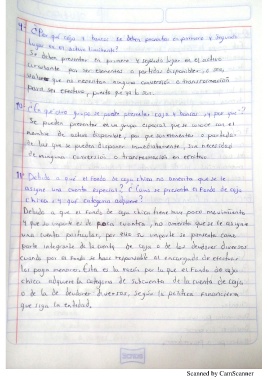 9- ¿Por qué caja y bancos se deben presentar en primero y segundo
lugar en el activo circulante?
Se deben presentar en primero y segundo lugar en el activo
circulante por ser elementos o partidas disponibles o sea,
valores que no necesitan ninguna conversión o transformación
para ser efectivo, puesto que ya lo son.
10- ¿En qué otro grupo se puede presentar caja y bancos y por qué?
Se pueden presentar en un grupo especial que se conoce con el
nombre de activo disponible, por que son elementos o partidas
de las que se puede disponer inmediatamente, sin necesidad
de ninguna conversión o transformación en efectivo.
11- Debido a que el fondo de caja chica no amerita que se le
asigne una cuenta especial? ¿Cómo se presenta el fondo de caja
chica y qué categoría adquiere?
Debido a que el fondo de caja chica tiene muy poco movimiento
y que su importe es de poca cuantía, no amerita que se le asigne
una cuenta particular, por eso su importe se presenta como
parte integrante de la cuenta de caja o de los deudores diversos
cuando por el fondo se hace responsable al encargado de efectuar
los pagos menores. Esta es la razón por la que el fondo de caja
chica adquiere la categoría de subcuenta de la cuenta de caja
o de la de deudores diversos, según la política financiera
que siga la entidad.
Scanned by CamScanner